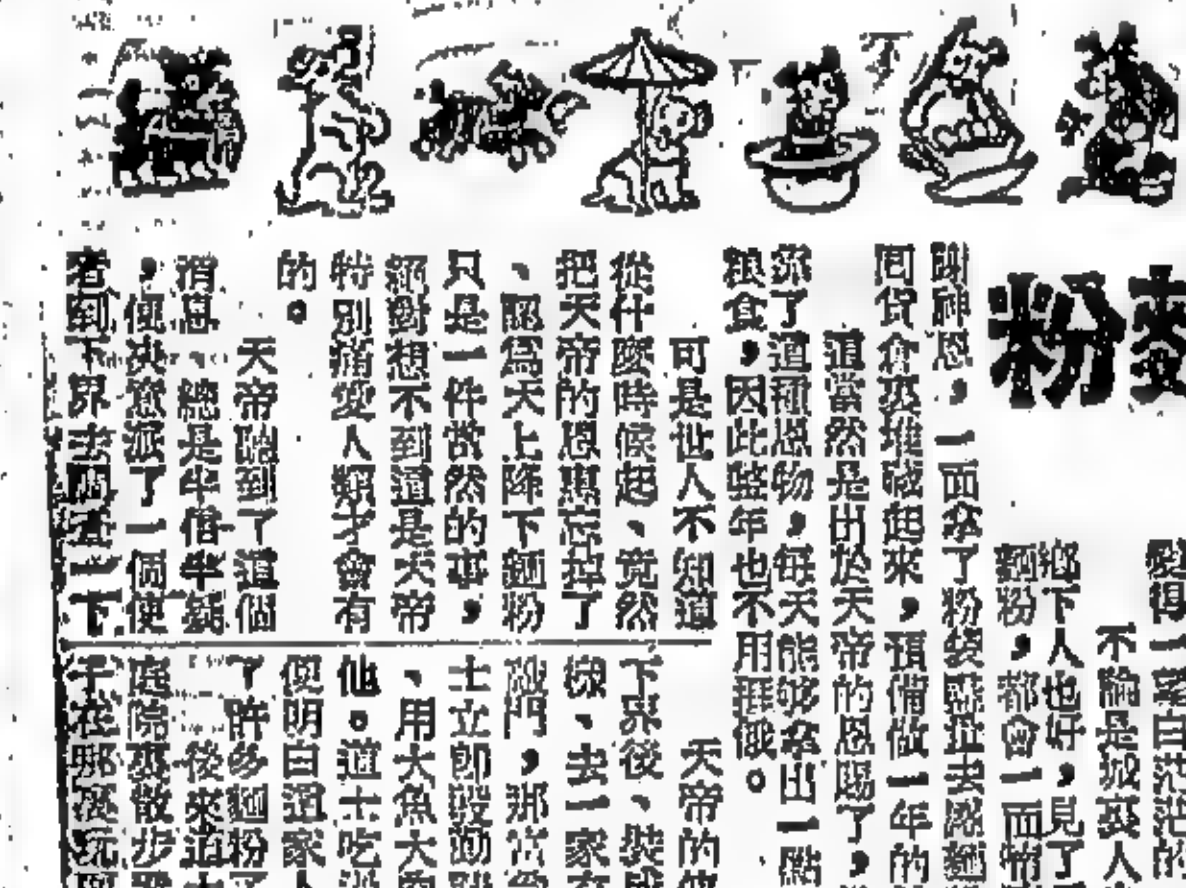 麥粉
愛得一望白茫茫的
不論是城裏人
鄉下人也好，見了
麵粉，都會一面
謝神恩，一面拿了粉袋
回貨倉裏堆起來，預備做一年的
這當然是出於天帝的恩賜了，
靠了這種恩物，每天能夠拿出一點
糧食，因此整年也不用捱餓。
可是世人不知道
從什麼時候起、竟然
把天帝的恩惠忘掉了
、認爲天上降下麵粉
只是一件當然的事，
絕對想不到這是天帝
特別痛愛人類才會有
的。
天帝聽到了這個
消息、總是半信半疑
，便決意派了一個使
者到下界去調查一下
天帝的使
下界後、裝成
樣、去一家
敲門，那
士立即殷勤
、用大魚大肉
他。道士吃
便明白這家人
了許多麵粉
後來道士
庭院裏散步
在那裏玩